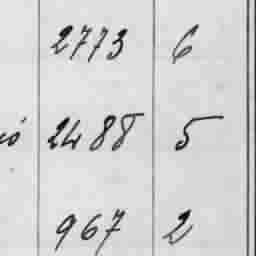 2773 6
ió 2488 5
967 2